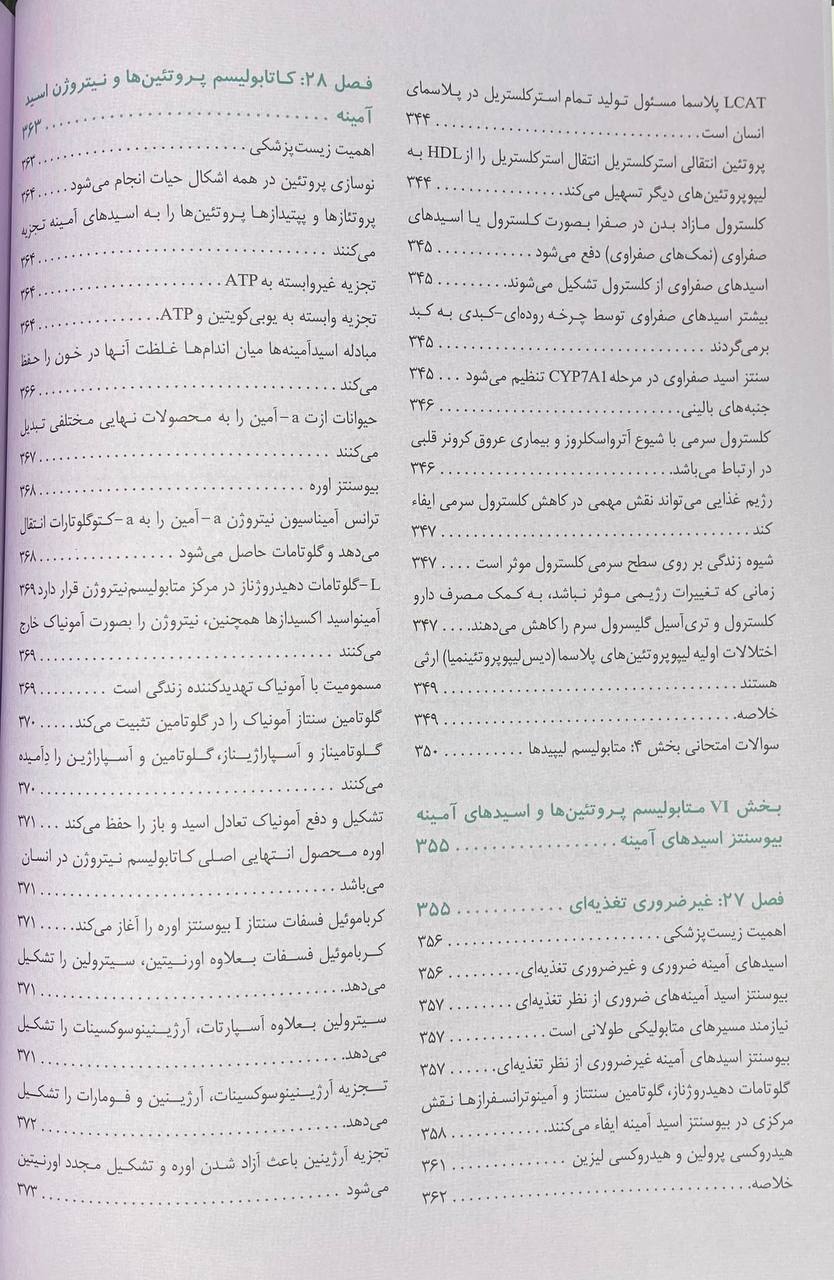 LCAT پلاسما مسئول تولید تمام استرکلستریل در پلاسمای
انسان است. . . . . . . . . . . . . . . . . . . . . . . . . . . . . ۳۴۴
پروتئین انتقالی استرکلستریل انتقال استرکلستریل را از HDL به
لیپوپروتئین‌های دیگر تسهیل می‌کند. . . . . . . . . . . . . . . ۳۴۴
کلسترول مازاد بدن در صفرا بصورت کلسترول یا اسیدهای
صفراوی (نمک‌های صفراوی) دفع می‌شود . . . . . . . . . . . ۳۴۵
اسیدهای صفراوی از کلسترول تشکیل می‌شوند. . . . . . . . . ۳۴۵
بیشتر اسیدهای صفراوی توسط چرخه روده‌ای-کبدی به کبد
برمی‌گردند . . . . . . . . . . . . . . . . . . . . . . . . . . . . . ۳۴۵
سنتز اسید صفراوی در مرحله CYP7A1 تنظیم می‌شود . . . ۳۴۵
جنبه‌های بالینی. . . . . . . . . . . . . . . . . . . . . . . . . . ۳۴۶
کلسترول سرمی با شیوع آترواسکلروز و بیماری عروق کرونر قلبی
در ارتباط می‌باشد. . . . . . . . . . . . . . . . . . . . . . . . . ۳۴۶
رژیم غذایی می‌تواند نقش مهمی در کاهش کلسترول سرمی ایفاء
کند . . . . . . . . . . . . . . . . . . . . . . . . . . . . . . . . . ۳۴۷
شیوه زندگی بر روی سطح سرمی کلسترول موثر است . . . . ۳۴۷
زمانی که تغییرات رژیمی موثر نباشد، به کمک مصرف دارو
کلسترول و تری‌آسیل گلیسرول سرم را کاهش می‌دهند. . . . ۳۴۷
اختلالات اولیه لیپوپروتئین‌های پلاسما (دیس‌لیپوپروتئینمیا) ارثی
هستند . . . . . . . . . . . . . . . . . . . . . . . . . . . . . . . ۳۴۹
خلاصه. . . . . . . . . . . . . . . . . . . . . . . . . . . . . . . . ۳۴۹
سوالات امتحانی بخش ۴: متابولیسم لیپیدها . . . . . . . . . ۳۵۰
بخش VI متابولیسم پروتئین‌ها و اسیدهای آمینه
بیوسنتز اسیدهای آمینه . . . . . . . . . . . . . . . . . . ۳۵۵
فصل ۲۷: غیرضروری تغذیه‌ای . . . . . . . . . . . . ۳۵۵
اهمیت زیست‌پزشکی . . . . . . . . . . . . . . . . . . . . . . . ۳۵۶
اسیدهای آمینه ضروری و غیرضروری تغذیه‌ای. . . . . . . . . ۳۵۶
بیوسنتز اسید آمینه‌های ضروری از نظر تغذیه‌ای . . . . . . . ۳۵۷
نیازمند مسیرهای متابولیکی طولانی است . . . . . . . . . . . ۳۵۷
بیوسنتز اسیدهای آمینه غیرضروری از نظر تغذیه‌ای. . . . . . ۳۵۷
گلوتامات دهیدروژناز، گلوتامین سنتتاز و آمینوترانسفرازها نقش
مرکزی در بیوسنتز اسید آمینه ایفاء می‌کنند. . . . . . . . . . . ۳۵۸
هیدروکسی پرولین و هیدروکسی لیزین . . . . . . . . . . . . . ۳۶۱
خلاصه. . . . . . . . . . . . . . . . . . . . . . . . . . . . . . . . ۳۶۲
فصل ۲۸: کاتابولیسم پروتئین‌ها و نیتروژن اسید
آمینه . . . . . . . . . . . . . . . . . . . . . . . . . . . . . ۳۶۳
اهمیت زیست‌پزشکی . . . . . . . . . . . . . . . . . . . . . . . ۳۶۳
نوسازی پروتئین در همه اشکال حیات انجام می‌شود . . . . . ۳۶۴
پروتئازها و پپتیدازها پروتئین‌ها را به اسیدهای آمینه تجزیه
می‌کنند . . . . . . . . . . . . . . . . . . . . . . . . . . . . . . . ۳۶۴
تجزیه غیروابسته به ATP . . . . . . . . . . . . . . . . . . . . ۳۶۴
تجزیه وابسته به یوبی‌کویتین و ATP. . . . . . . . . . . . . . ۳۶۴
مبادله اسیدآمینه‌ها میان اندام‌ها غلظت آنها در خون را حفظ
می‌کند . . . . . . . . . . . . . . . . . . . . . . . . . . . . . . . ۳۶۶
حیوانات ازت a-آمین را به محصولات نهایی مختلفی تبدیل
می‌کنند . . . . . . . . . . . . . . . . . . . . . . . . . . . . . . . ۳۶۷
بیوسنتز اوره . . . . . . . . . . . . . . . . . . . . . . . . . . . . ۳۶۸
ترانس آمیناسیون نیتروژن a-آمین را به a-کتوگلوتارات انتقال
می‌دهد و گلوتامات حاصل می‌شود . . . . . . . . . . . . . . . ۳۶۸
L-گلوتامات دهیدروژناز در مرکز متابولیسم‌نیتروژن قرار دارد ۳۶۹
آمینواسید اکسیدازها همچنین، نیتروژن را بصورت آمونیاک خارج
می‌کنند . . . . . . . . . . . . . . . . . . . . . . . . . . . . . . . ۳۶۹
مسمومیت با آمونیاک تهدیدکننده زندگی است . . . . . . . . ۳۶۹
گلوتامین سنتاز آمونیاک را در گلوتامین تثبیت می‌کند. . . . . ۳۷۰
گلوتامیناز و آسپاراژیناز، گلوتامین و آسپاراژین را دِآمیده
می‌کنند . . . . . . . . . . . . . . . . . . . . . . . . . . . . . . . ۳۷۰
تشکیل و دفع آمونیاک تعادل اسید و باز را حفظ می‌کند . . . ۳۷۱
اوره محصول انتهایی اصلی کاتابولیسم نیتروژن در انسان
می‌باشد . . . . . . . . . . . . . . . . . . . . . . . . . . . . . . . ۳۷۱
کرباموئیل فسفات سنتاز I بیوسنتز اوره را آغاز می‌کند. . . . . ۳۷۱
کرباموئیل فسفات بعلاوه اورنیتین، سیترولین را تشکیل
می‌دهد. . . . . . . . . . . . . . . . . . . . . . . . . . . . . . . . ۳۷۱
سیترولین بعلاوه آسپارتات، آرژینینوسوکسینات را تشکیل
می‌دهد. . . . . . . . . . . . . . . . . . . . . . . . . . . . . . . . ۳۷۱
تجزیه آرژینینوسوکسینات، آرژینین و فومارات را تشکیل
می‌دهد. . . . . . . . . . . . . . . . . . . . . . . . . . . . . . . . ۳۷۲
تجزیه آرژینین باعث آزاد شدن اوره و تشکیل مجدد اورنیتین
می‌شود . . . . . . . . . . . . . . . . . . . . . . . . . . . . . . . ۳۷۳